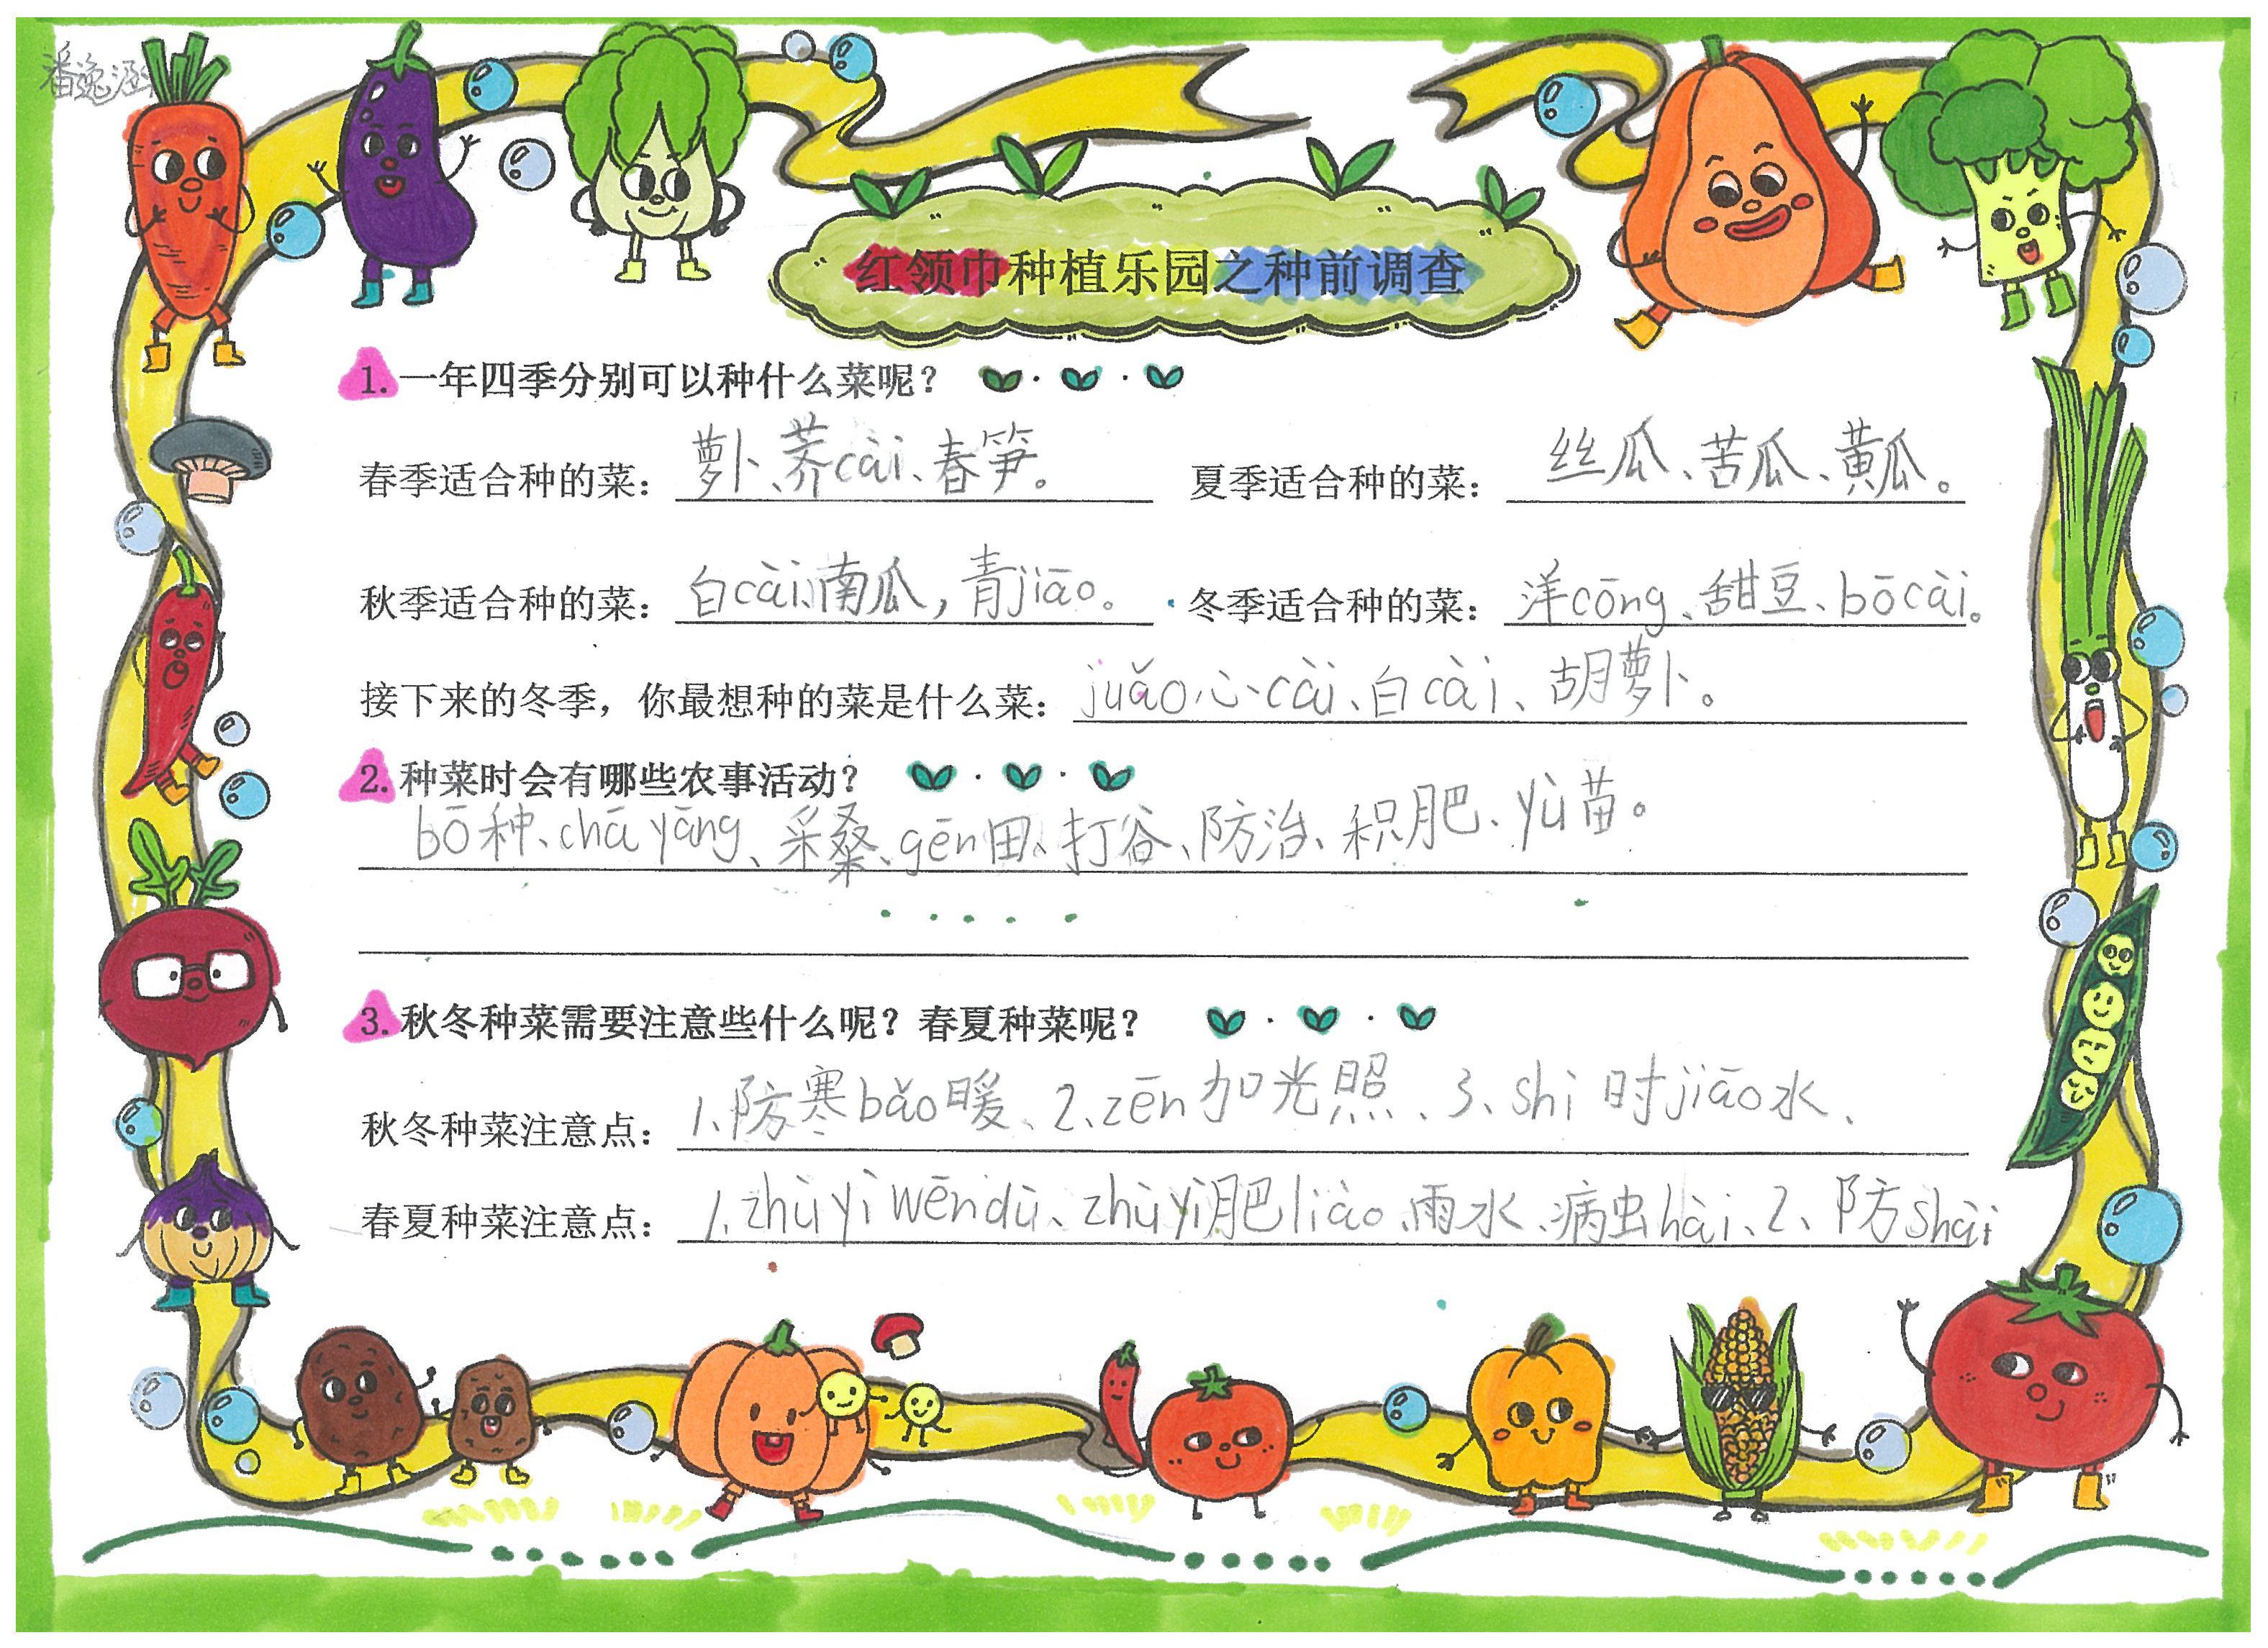 潘逸涵
红领巾种植乐园之种前调查
1.一年四季分别可以种什么菜呢？
春季适合种的菜：萝卜、荠cài、春笋。 夏季适合种的菜：丝瓜、苦瓜、黄瓜。
秋季适合种的菜：白cài、南瓜，青jiāo。 冬季适合种的菜：洋cōng、甜豆、bōcài。
接下来的冬季，你最想种的菜是什么菜：juǎo心cài、白cài、胡萝卜。
2.种菜时会有哪些农事活动？
bō种、chā yāng、采桑、gēn田、打谷、防治、积肥、yù苗。
3.秋冬种菜需要注意些什么呢？春夏种菜呢？
秋冬种菜注意点：1、防寒bǎo暖、2、zēn加光照、3、shì时jiāo水、
春夏种菜注意点：1、zhù yì wēn dù、zhù yì肥liào、雨水、病虫hài、2、防shài